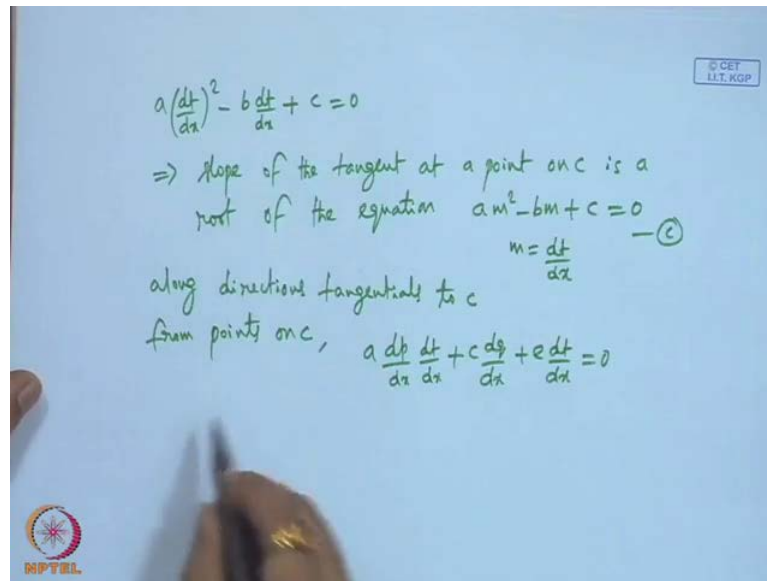 © CET
I.I.T. KGP
a(dt/dx)² - b dt/dx + c = 0
⇒ slope of the tangent at a point on c is a
root of the equation am² - bm + c = 0
— ⓒ
m = dt/dx
along directions tangentials to c
from points on c, a dp/dx dt/dx + c dq/dx + e dt/dx = 0
NPTEL